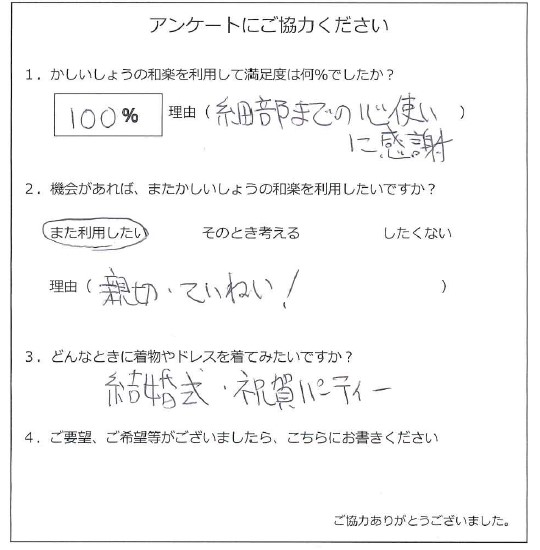 アンケートにご協力ください
1．かしいしょうの和楽を利用して満足度は何％でしたか？
100％ 理由（細部までの心使い）
に感謝
2．機会があれば、またかしいしょうの和楽を利用したいですか？
また利用したい そのとき考える したくない
理由（親切・ていねい！）
3．どんなときに着物やドレスを着てみたいですか？
結婚式・祝賀パーティー
4．ご要望、ご希望等がございましたら、こちらにお書きください
ご協力ありがとうございました。